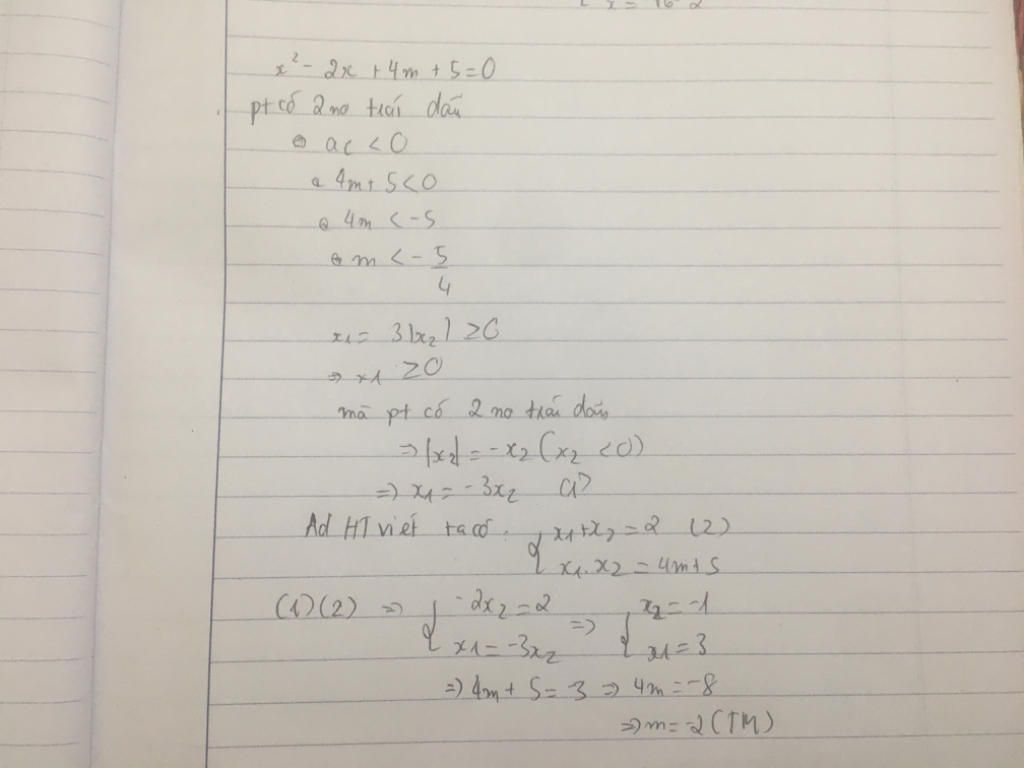 x² - 2x + 4m + 5 = 0
pt có 2 no trái dấu
⇔ ac < 0
⇔ 4m + 5 < 0
⇔ 4m < -5
⇔ m < - 5/4
x1 = 3|x2| ≥ 0
⇒ x1 ≥ 0
mà pt có 2 no trái dấu
⇒ |x2| = -x2 (x2 < 0)
⇒ x1 = -3x2 (1)
Ad HT viét ta có : { x1 + x2 = 2 (2)
x1 . x2 = 4m + 5
(1)(2) ⇒ { -2x2 = 2 ⇒ { x2 = -1
x1 = -3x2 x1 = 3
⇒ 4m + 5 = 3 ⇒ 4m = -8
⇒ m = -2 (TM)